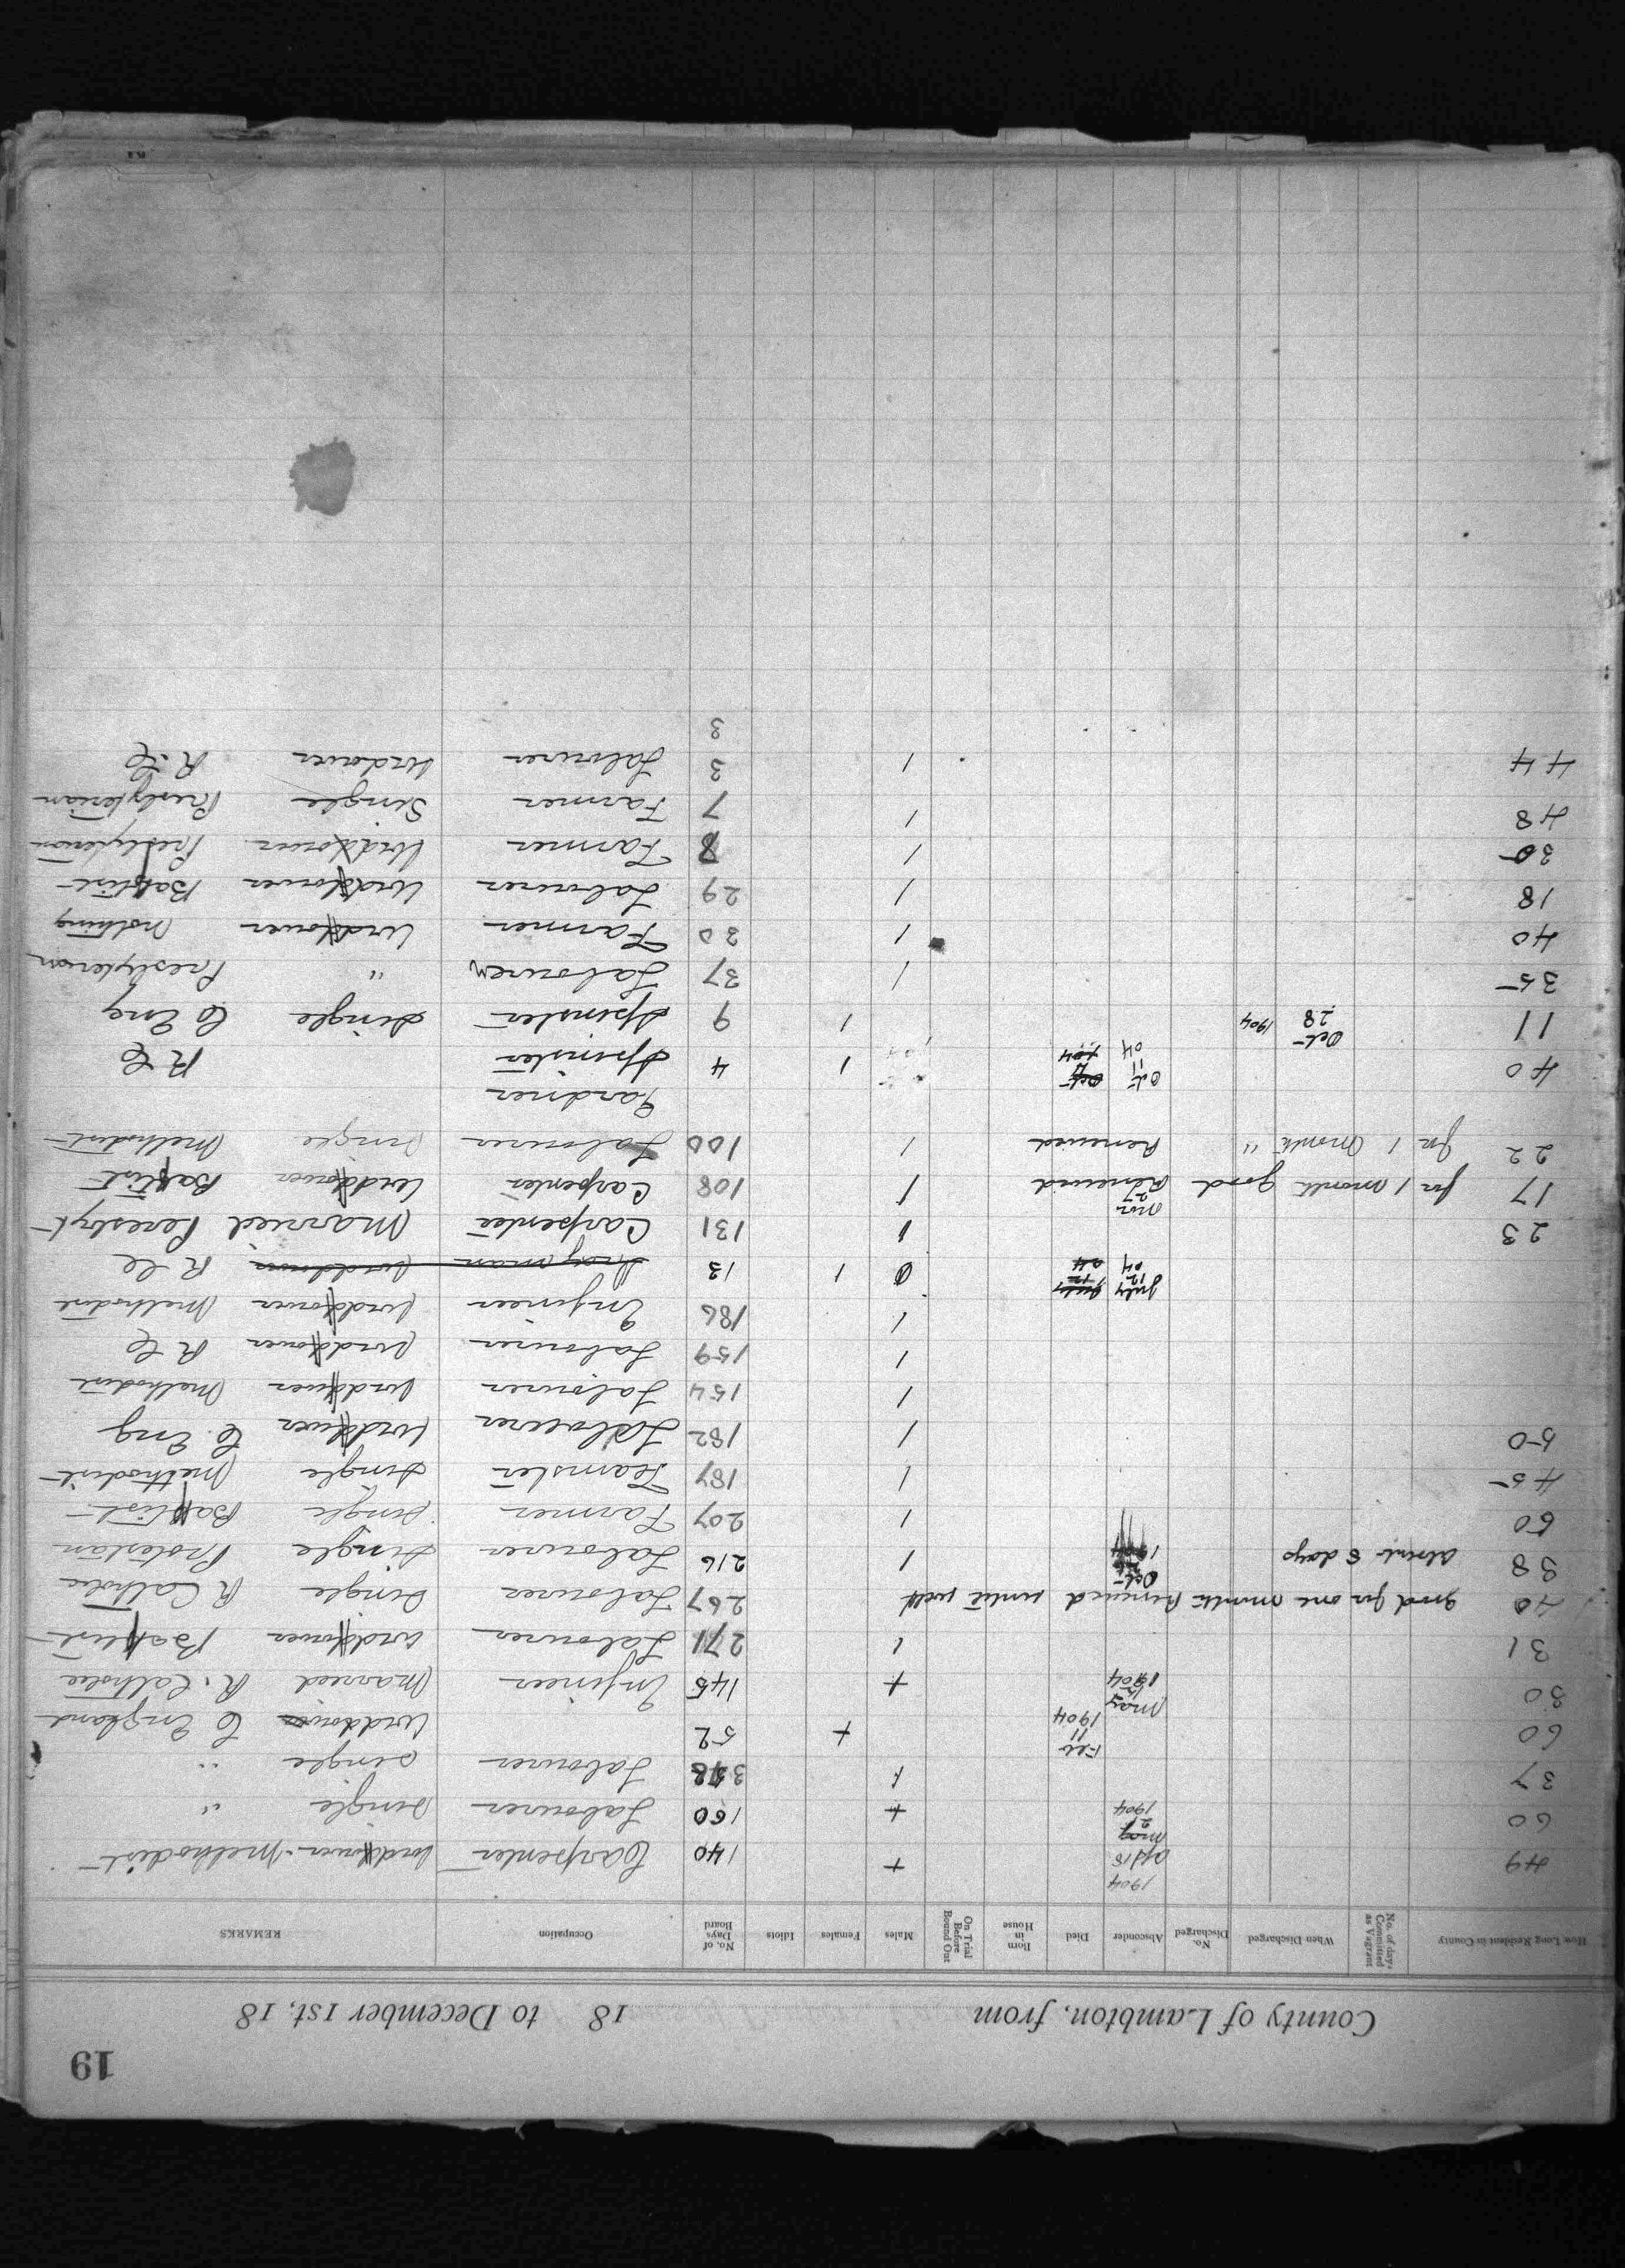 19
County of Lambton, from 18 to December 1st, 18
How Long Resident in County No. of days Committed as Vagrant When Discharged No. Discharged Absconder Died Born in House On Trial Before Bound Out Males Females Idiots No. of Days Board Occupation REMARKS
49 1904 Apl 18 + 140 Carpenter Widdower Methodist
60 May 21 1904 + 160 Labourer Single "
37 1 Labourer Single "
60 Feb 11 1904 + 52 C England
30 May 1904 + 145 Engineer Married R. Catholic
31 1 271 Labourer Widdower Baptist
40 good for one month Renewed until well 267 Labourer Single R Catholic
38 absent 8 days Oct 1904 1 216 Labourer Single Protestan
60 1 207 Farmer Single Baptist
45 1 187 Teamster Single Methodist
50 1 182 Labourer Widdower C. Eng
1 154 Labourer Widdower Methodist
1 159 Labourer Widdower R C
1 186 Engineer Widdower Methodist
July 12 04 0 1 13 R C
23 1 131 Carpenter Married Peresbyt
17 for 1 month good Nov 27 Renewed Renewed 1 108 Carpenter Widdower Baptist
22 for 1 month " Renewed Renewed 1 100 Labourer Single Methodist
Gardner
40 Oct 11 04 1 4 Spinster R C
11 Oct 28 1904 1 9 Spinster Single C Eng
35 1 37 Labourer " Presbyterian
40 1 30 Farmer Widdower Nothing
18 1 29 Labourer Widdower Baptist
30 1 8 Farmer Widdower Presbyterian
48 1 7 Farmer Single Presbyterian
44 1 3 Labourer Widower R.C
3